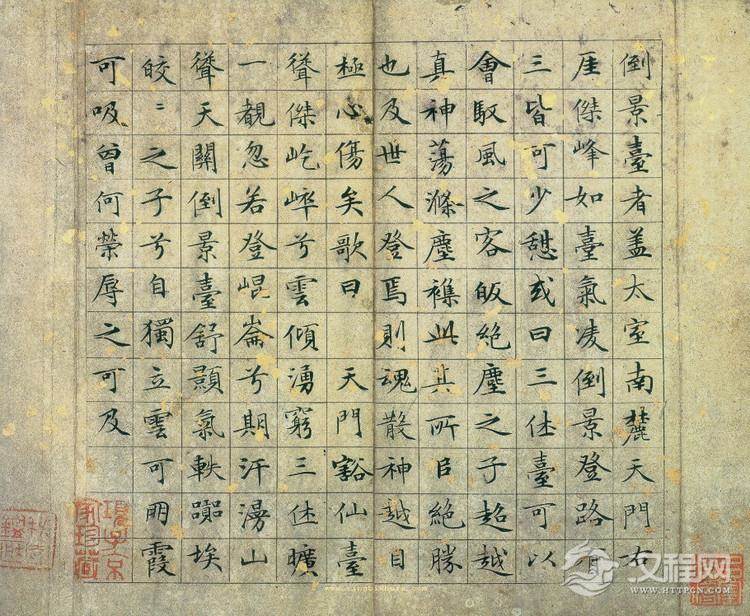 倒景臺者盖太室南麓天門右
厓傑峰如臺氣凌倒景登路有
三皆可少憩或曰三休臺可以
會馭風之客皈絶塵之子超越
真神蕩滌塵襟此其所㠯絶勝
也及世人登焉則魂散神越目
極心傷矣歌曰 天門豁仙臺
聳傑屹崒兮雲傾湧窮三休曠
一覩忽若登崐崙兮期汗漫山
聳天關倒景臺舒顥氣軼躁埃
皎〻之子兮自獨立雲可朋霞
可吸曾何榮辱之可及
項子京家珍藏
汉程网
WWW.HTTPCN.COM